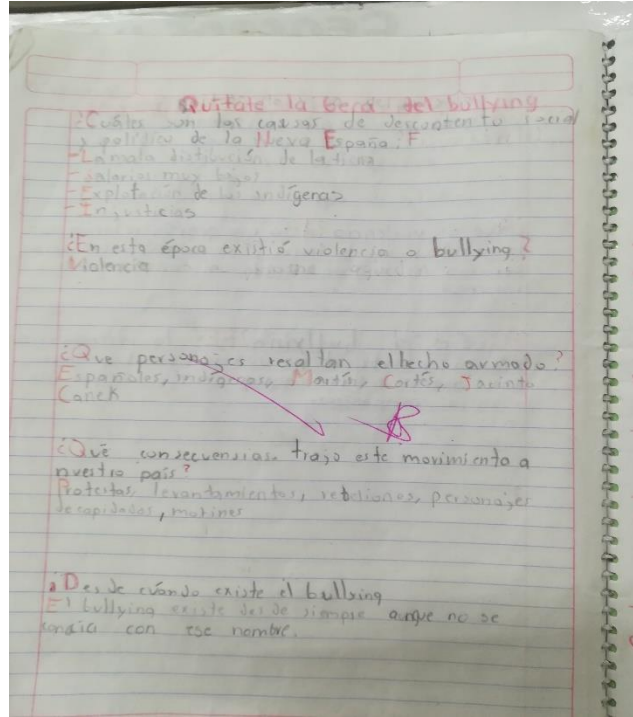 Quitate la venda del bullying
¿Cuáles son las causas de descontento social
y política de la Nueva España: F
- La mala distribución de la tierra
- Salarios muy bajos
- Explotación de los indígenas
- Injusticias
¿En esta época existió violencia o bullying?
Violencia
¿Que personajes resaltan el hecho armado?
Españoles, indígenas, Martín, Cortés, Jacinto
Canek
¿Qué consecuensias trajo este movimiento a
nuestro país?
Protestas, levantamientos, rebeliones, personajes
decapitados, motines
¿Desde cuándo existe el bullying
El bullying existe desde siempre aunque no se
conocía con ese nombre.